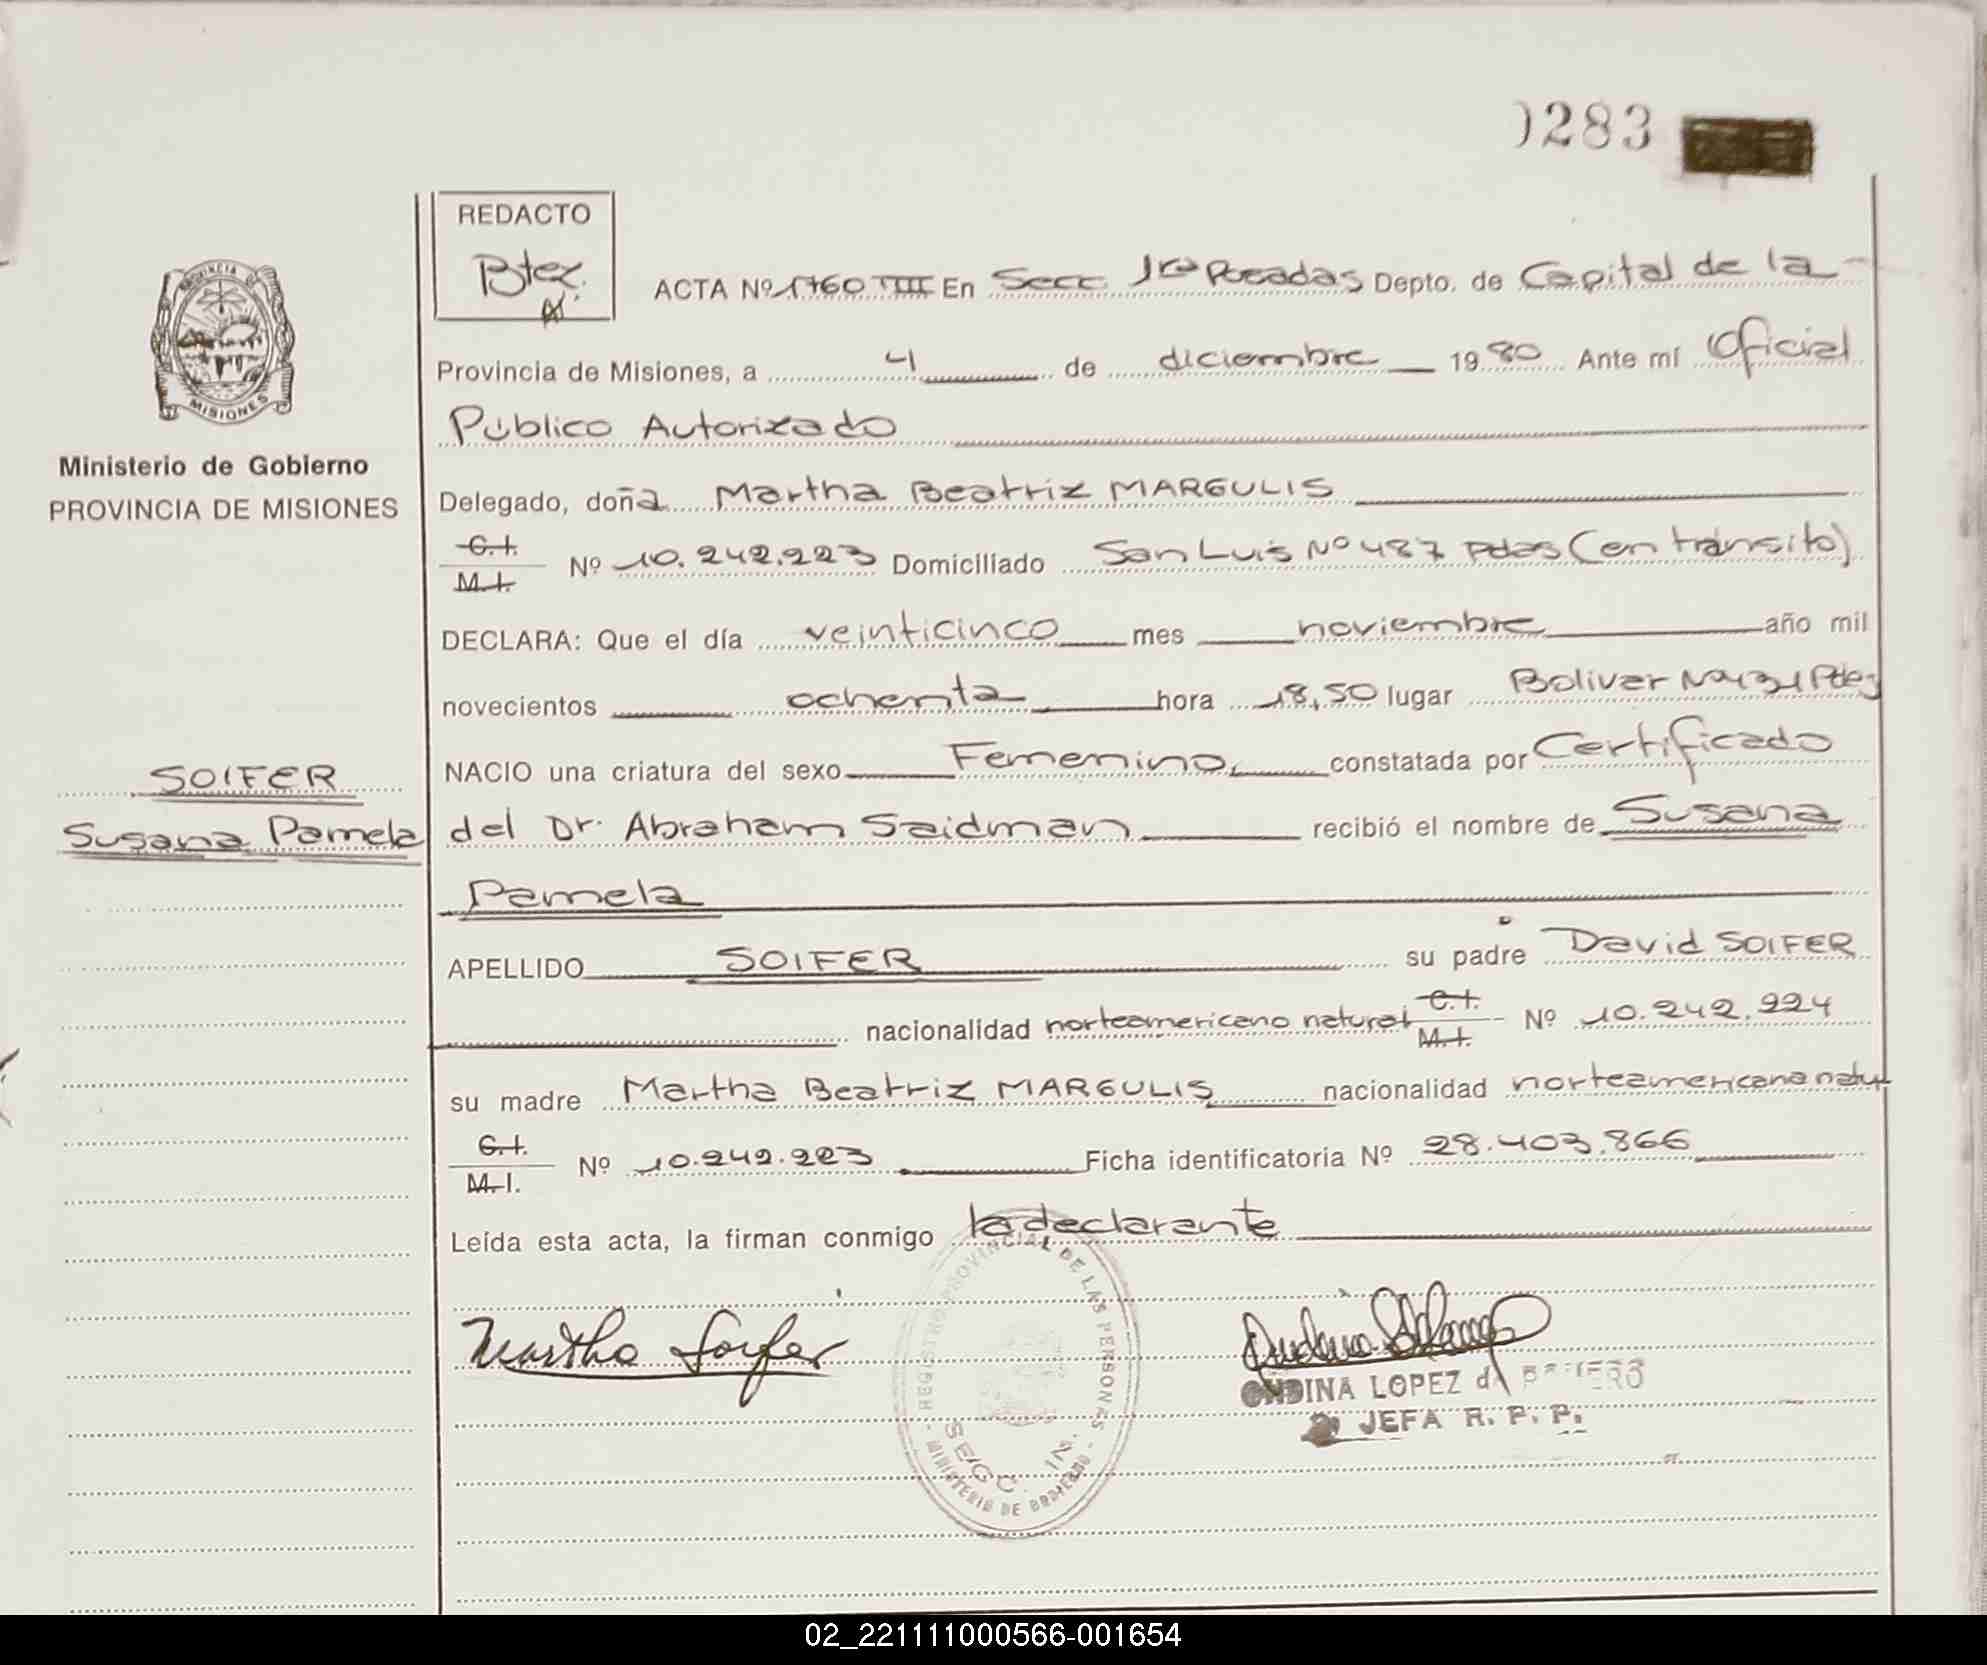 0283
REDACTO
Btez.
ACTA Nº 1760 TIII En Secc 1ra Posadas Depto. de Capital de la
Provincia de Misiones, a 4 de diciembre 1980 Ante mí Oficial
Público Autorizado
PROVINCIA DE
MISIONES
Ministerio de Gobierno
PROVINCIA DE MISIONES
Delegado, doña Martha Beatriz MARGULIS
C.I.
M.I. Nº 10.242.223 Domiciliado San Luis Nº 487 Pdas (en tránsito)
DECLARA: Que el día veinticinco mes noviembre año mil
novecientos ochenta hora 18,50 lugar Bolivar Nº 431 Pdas
SOIFER
Susana Pamela
NACIO una criatura del sexo Femenino, constatada por Certificado
del Dr. Abraham Saidman recibió el nombre de Susana
Pamela
APELLIDO SOIFER su padre David SOIFER
nacionalidad norteamericano natural C.I. M.I. Nº 10.242.224
su madre Martha Beatriz MARGULIS nacionalidad norteamericana natu
C.I.
M.I. Nº 10.242.223 Ficha identificatoria Nº 28.403.866
Leída esta acta, la firman conmigo la declarante
Martha Soifer
REGISTRO PROVINCIAL DE LAS PERSONAS
MINISTERIO DE GOBIERNO
ONDINA LOPEZ d
JEFA R. P. P.
02_221111000566-001654